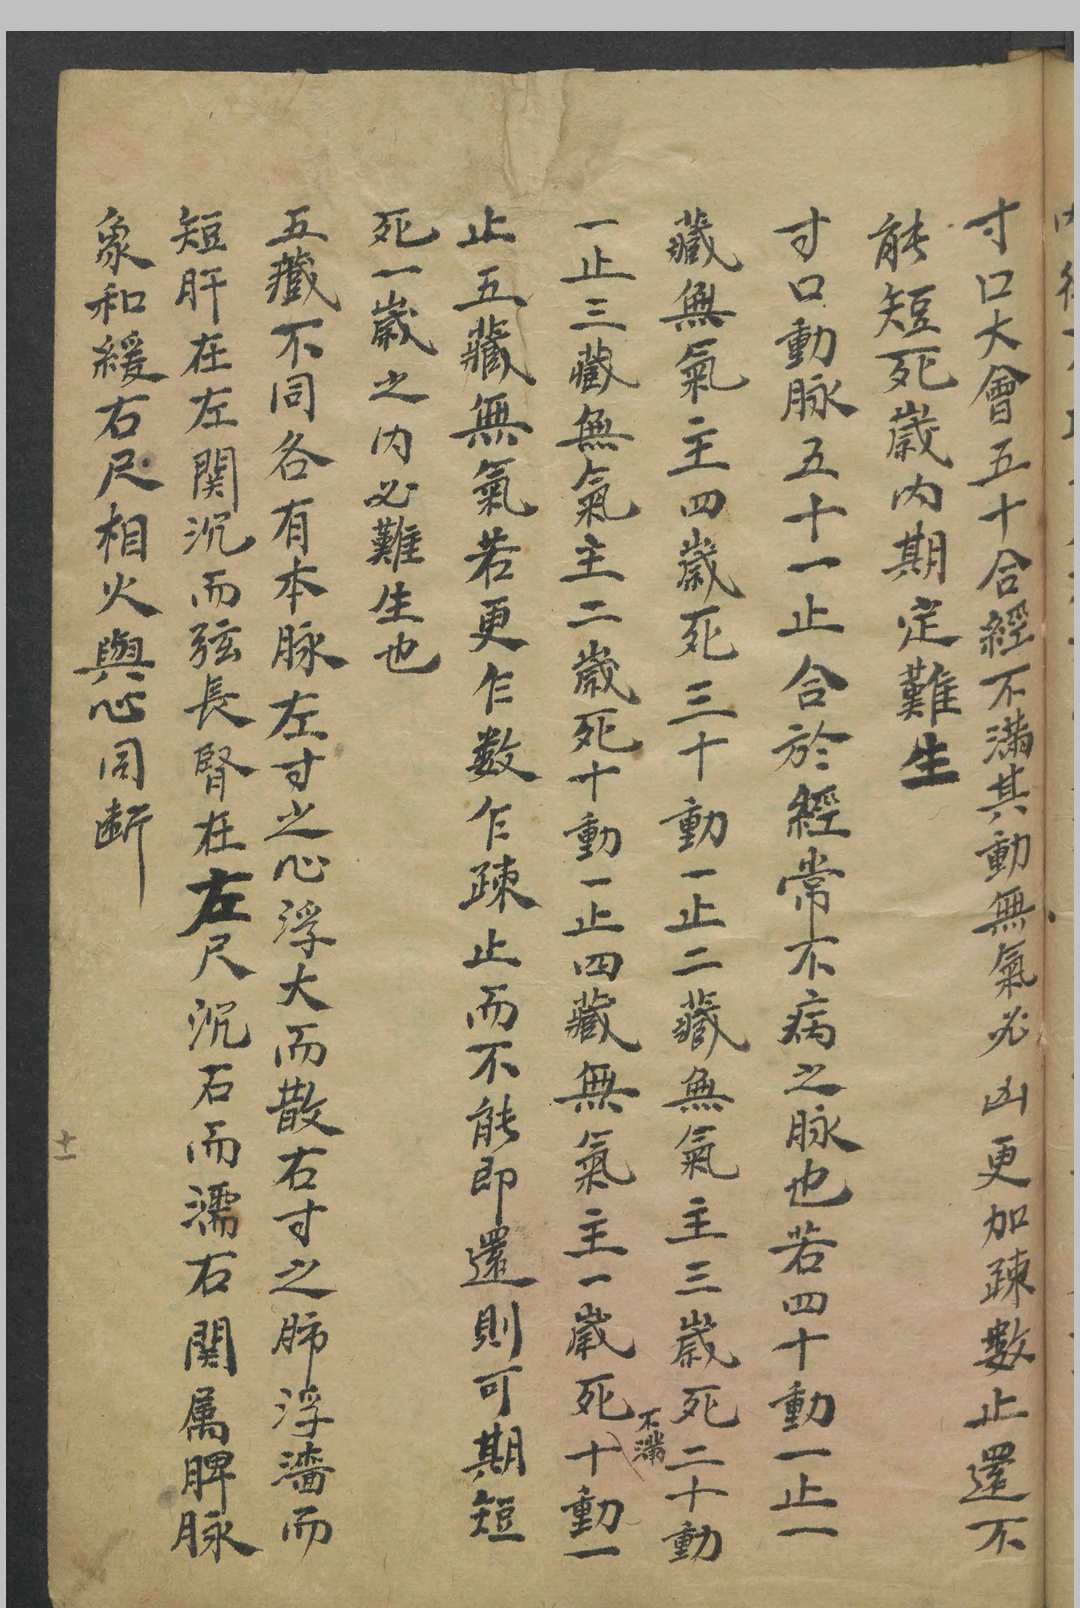 寸口大會五十合經不滿其動無氣必凶更加疎數止還不
能短死歲內期定難生
寸口動脉五十一止合於經常不病之脉也若四十動一止一
藏無氣主四歲死三十動一止二藏無氣主三歲死二十動
一止三藏無氣主二歲死十動一止四藏無氣主一歲死十動一
不滿
止五藏無氣若更乍数乍疎止而不能即還則可期短
死一歲之內必難生也
五藏不同各有本脉左寸之心浮大而散右寸之肺浮濇而
短肝在左関沉而弦長腎在左尺沉石而濡右関属脾脉
象和緩右尺相火與心同断
十一